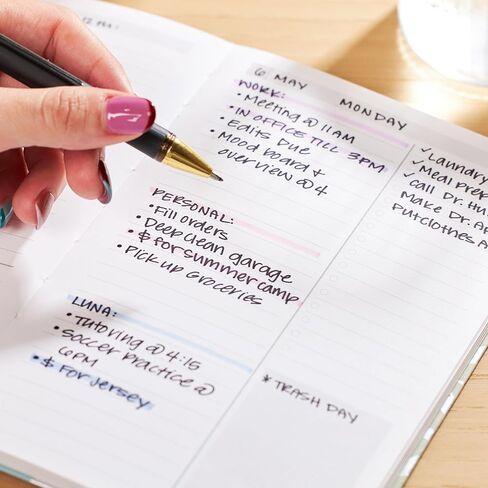 12 PM:
6 MAY
MONDAY
WORK:
• Meeting @ 11AM
• IN OFFICE TILL 3PM
• Edits Due
• Mood board &
overview @ 4
PERSONAL:
• Fill orders
• Deep clean garage
• $ for summer camp
• Pick up groceries
LUNA:
• Tutoring @ 4:15
• Soccer Practice @
6PM
• $ For Jersey
✓ Laundry
✓ Meal prep
✓ call Dr. Hu
Make Dr. A
Put clothes A
* TRASH DAY